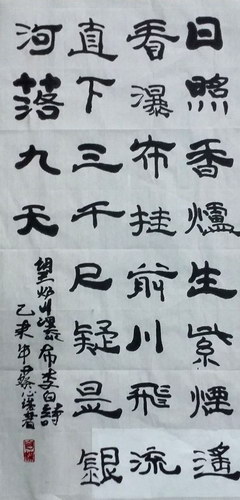 日照香爐生紫煙遙
看瀑布挂前川飛流
直下三千尺疑是銀
河落九天
望山瀑布李白詩
乙未年書